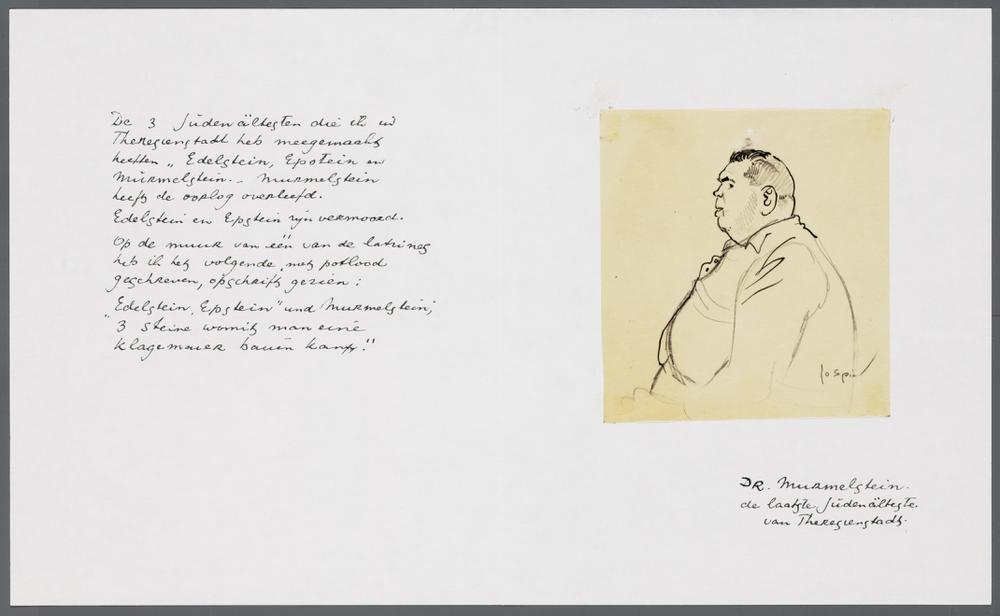 De 3 Judenältesten die ik in
Theresienstadt heb meegemaakt
heetten „Edelstein, Epstein en
Murmelstein. – Murmelstein
heeft de oorlog overleefd.
Edelstein en Epstein zijn vermoord.
Op de muur van één van de latrines
heb ik het volgende, met potlood
geschreven, opschrift gezien:
„Edelstein, Epstein" und Murmelstein,
3 Steine womit man eine
Klagemauer bauen kann."
Jo Spier
DR. Murmelstein.
de laatste Judenälteste.
van Theresienstadt.